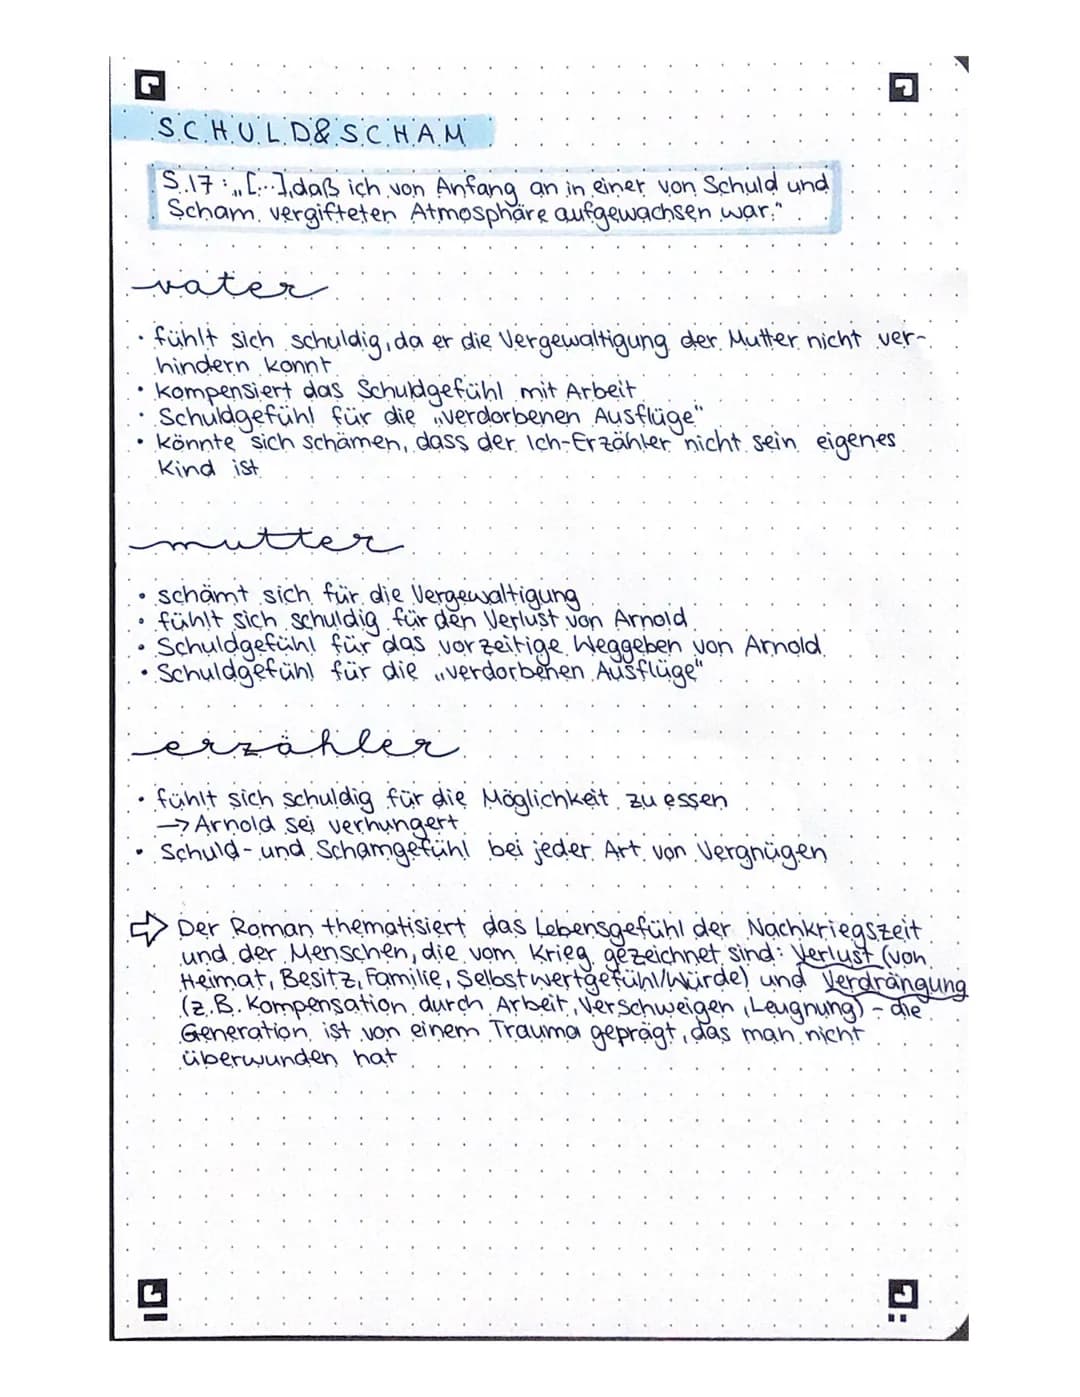 SCHULD&SCHAM
S.17: „[...], daß ich von Anfang an in einer von Schuld und
Scham vergifteten Atmosphäre aufgewachsen war."
vater
· fühlt sich schuldig, da er die Vergewaltigung der Mutter nicht ver-
hindern konnt
· kompensiert das Schuldgefühl mit Arbeit
· Schuldgefühl für die „verdorbenen Ausflüge"
· könnte sich schämen, dass der Ich-Erzähler nicht sein eigenes
Kind ist
mutter
· schämt sich für die Vergewaltigung
· fühlt sich schuldig für den Verlust von Arnold
· Schuldgefühl für das vorzeitige Weggeben von Arnold
· Schuldgefühl für die „verdorbenen Ausflüge"
erzähler
· fühlt sich schuldig für die Möglichkeit zu essen
→ Arnold sei verhungert
· Schuld- und Schamgefühl bei jeder Art von Vergnügen
⇨ Der Roman thematisiert das Lebensgefühl der Nachkriegszeit
und der Menschen, die vom Krieg gezeichnet sind: Verlust (von
Heimat, Besitz, Familie, Selbstwertgefühl/Würde) und Verdrängung
(z.B. Kompensation durch Arbeit, Verschweigen, Leugnung) - die
Generation ist von einem Trauma geprägt, das man nicht
überwunden hat